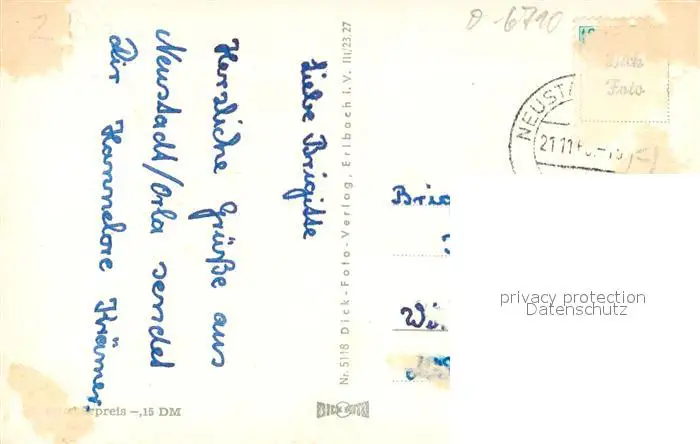 Liebe Brigitte
Herzliche Grüße aus
Neustadt/Orla sendet
Dir Hannelore Krämer.
Nr. 5118 Dick-Foto-Verlag, Erlbach i. V. III/23.27
DICK FOTO
preis -,15 DM
6710
Dick
Foto
NEUST
21.11
privacy protection
Datenschutz